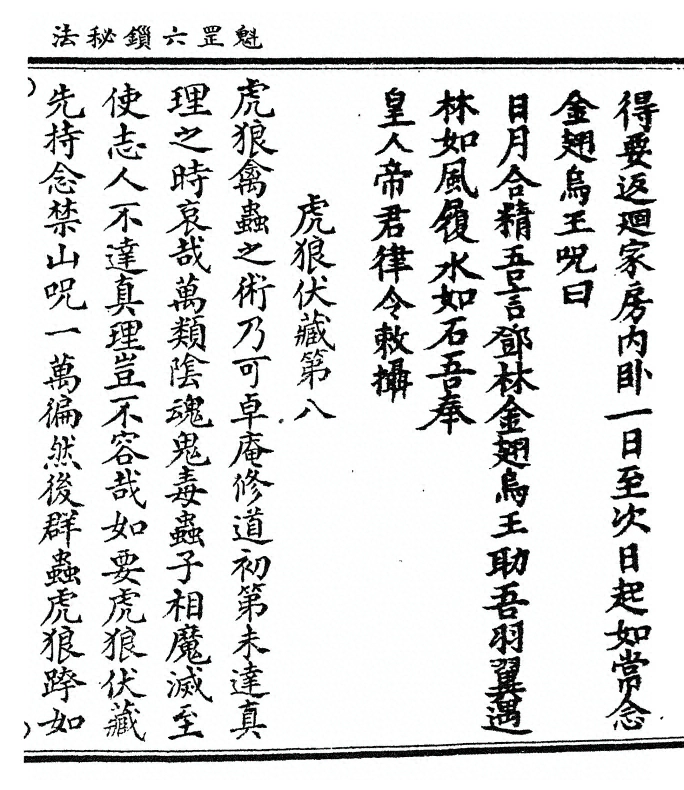 魁罡六鎖秘法
得要返廻家房内卧一日至次日起如常念
金翅烏王呪曰
日月合精吾言鄧林金翅烏王助吾羽翼遇
林如風履水如石吾奉
皇人帝君律令敕攝
虎狼伏藏第八
虎狼禽蟲之術乃可卓庵修道初第未達真
理之時哀哉萬類陰魂鬼毒蟲子相魔滅至
使志人不達真理豈不容哉如要虎狼伏藏
先持念禁山呪一萬徧然後群蟲虎狼蹄如